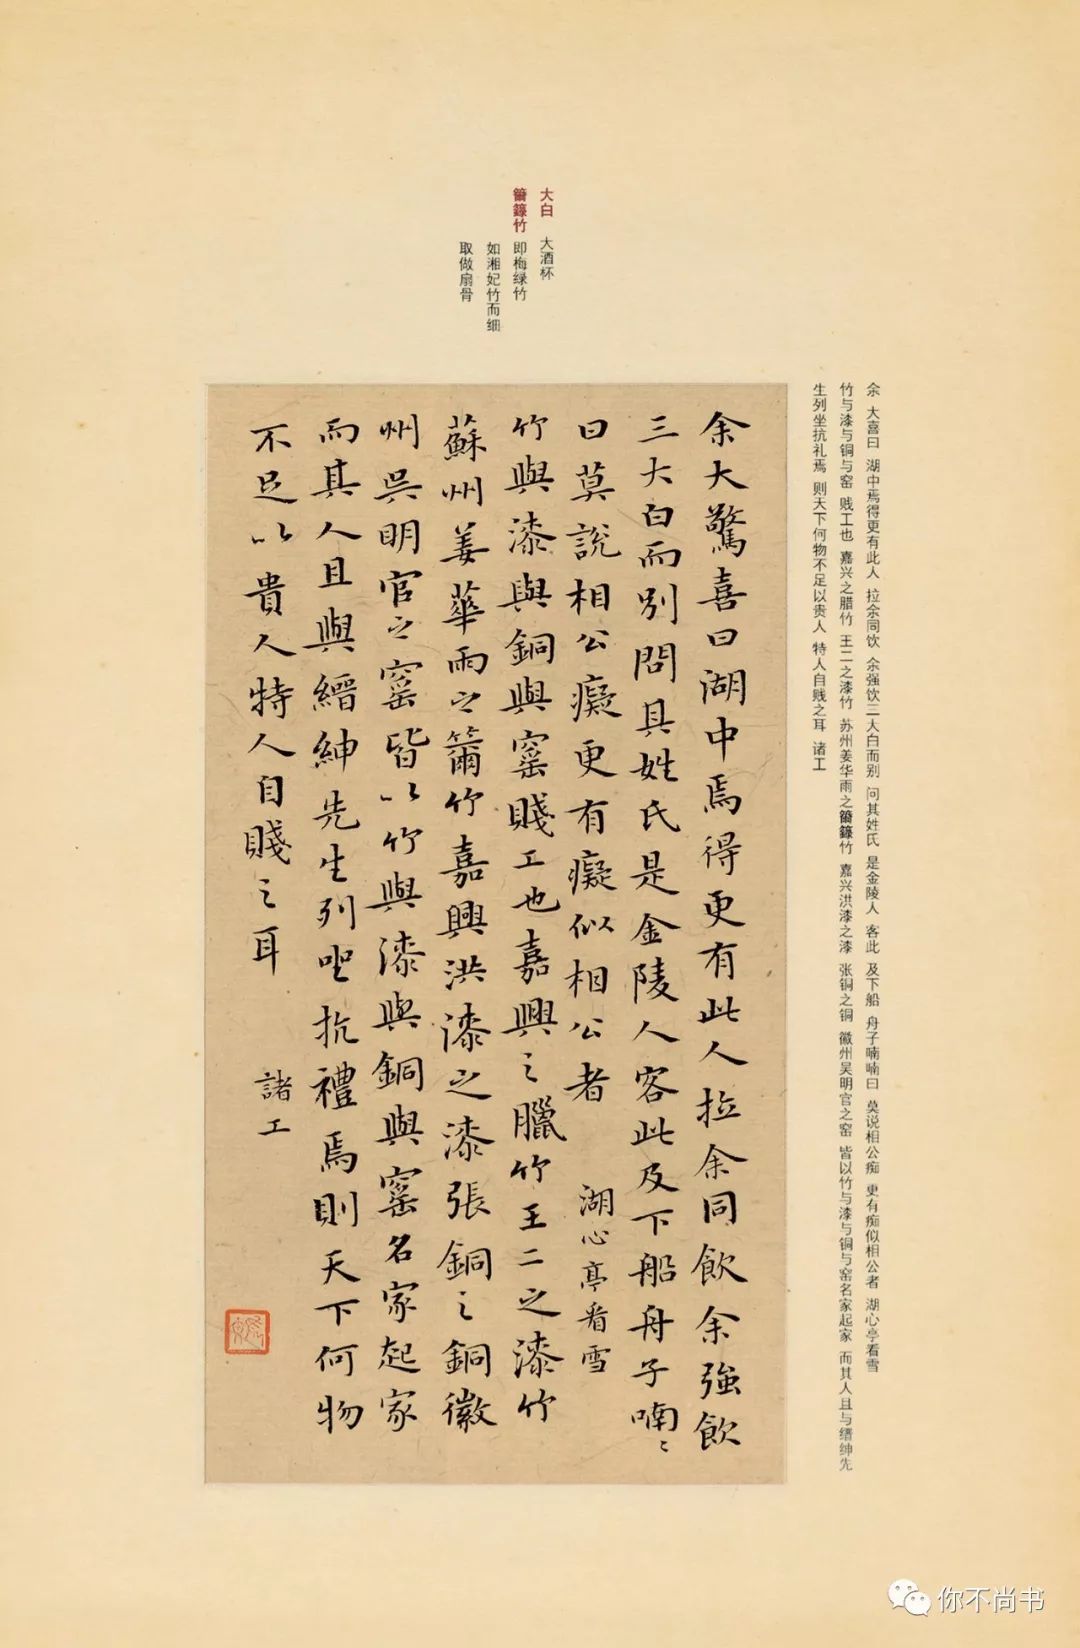 大白 大酒杯
籋簶竹 即梅绿竹
如湘妃竹而细
取做扇骨
余 大喜曰 湖中焉得更有此人 拉余同饮 余强饮三大白而别 问其姓氏 是金陵人 客此 及下船 舟子喃喃曰 莫说相公痴 更有痴似相公者 湖心亭看雪
竹与漆与铜与窑 贱工也 嘉兴之腊竹 王二之漆竹 苏州姜华雨之籋簶竹 嘉兴洪漆之漆 张铜之铜 徽州吴明官之窑 皆以竹与漆与铜与窑名家起家 而其人且与缙绅先
生列坐抗礼焉 则天下何物不足以贵人 特人自贱之耳 诸工
余大驚喜曰湖中焉得更有此人拉余同飲余強飲
三大白而別問其姓氏是金陵人客此及下船舟子喃〻
曰莫說相公癡更有癡似相公者 湖心亭看雪
竹與漆與銅與窰賤工也嘉興之臘竹王二之漆竹
蘇州姜華雨之籋竹嘉興洪漆之漆張銅之銅徽
州吳明官之窰皆以竹與漆與銅與窰名家起家
而其人且與縉紳先生列坐抗禮焉則天下何物
不足以貴人特人自賤之耳 諸工
你不尚书